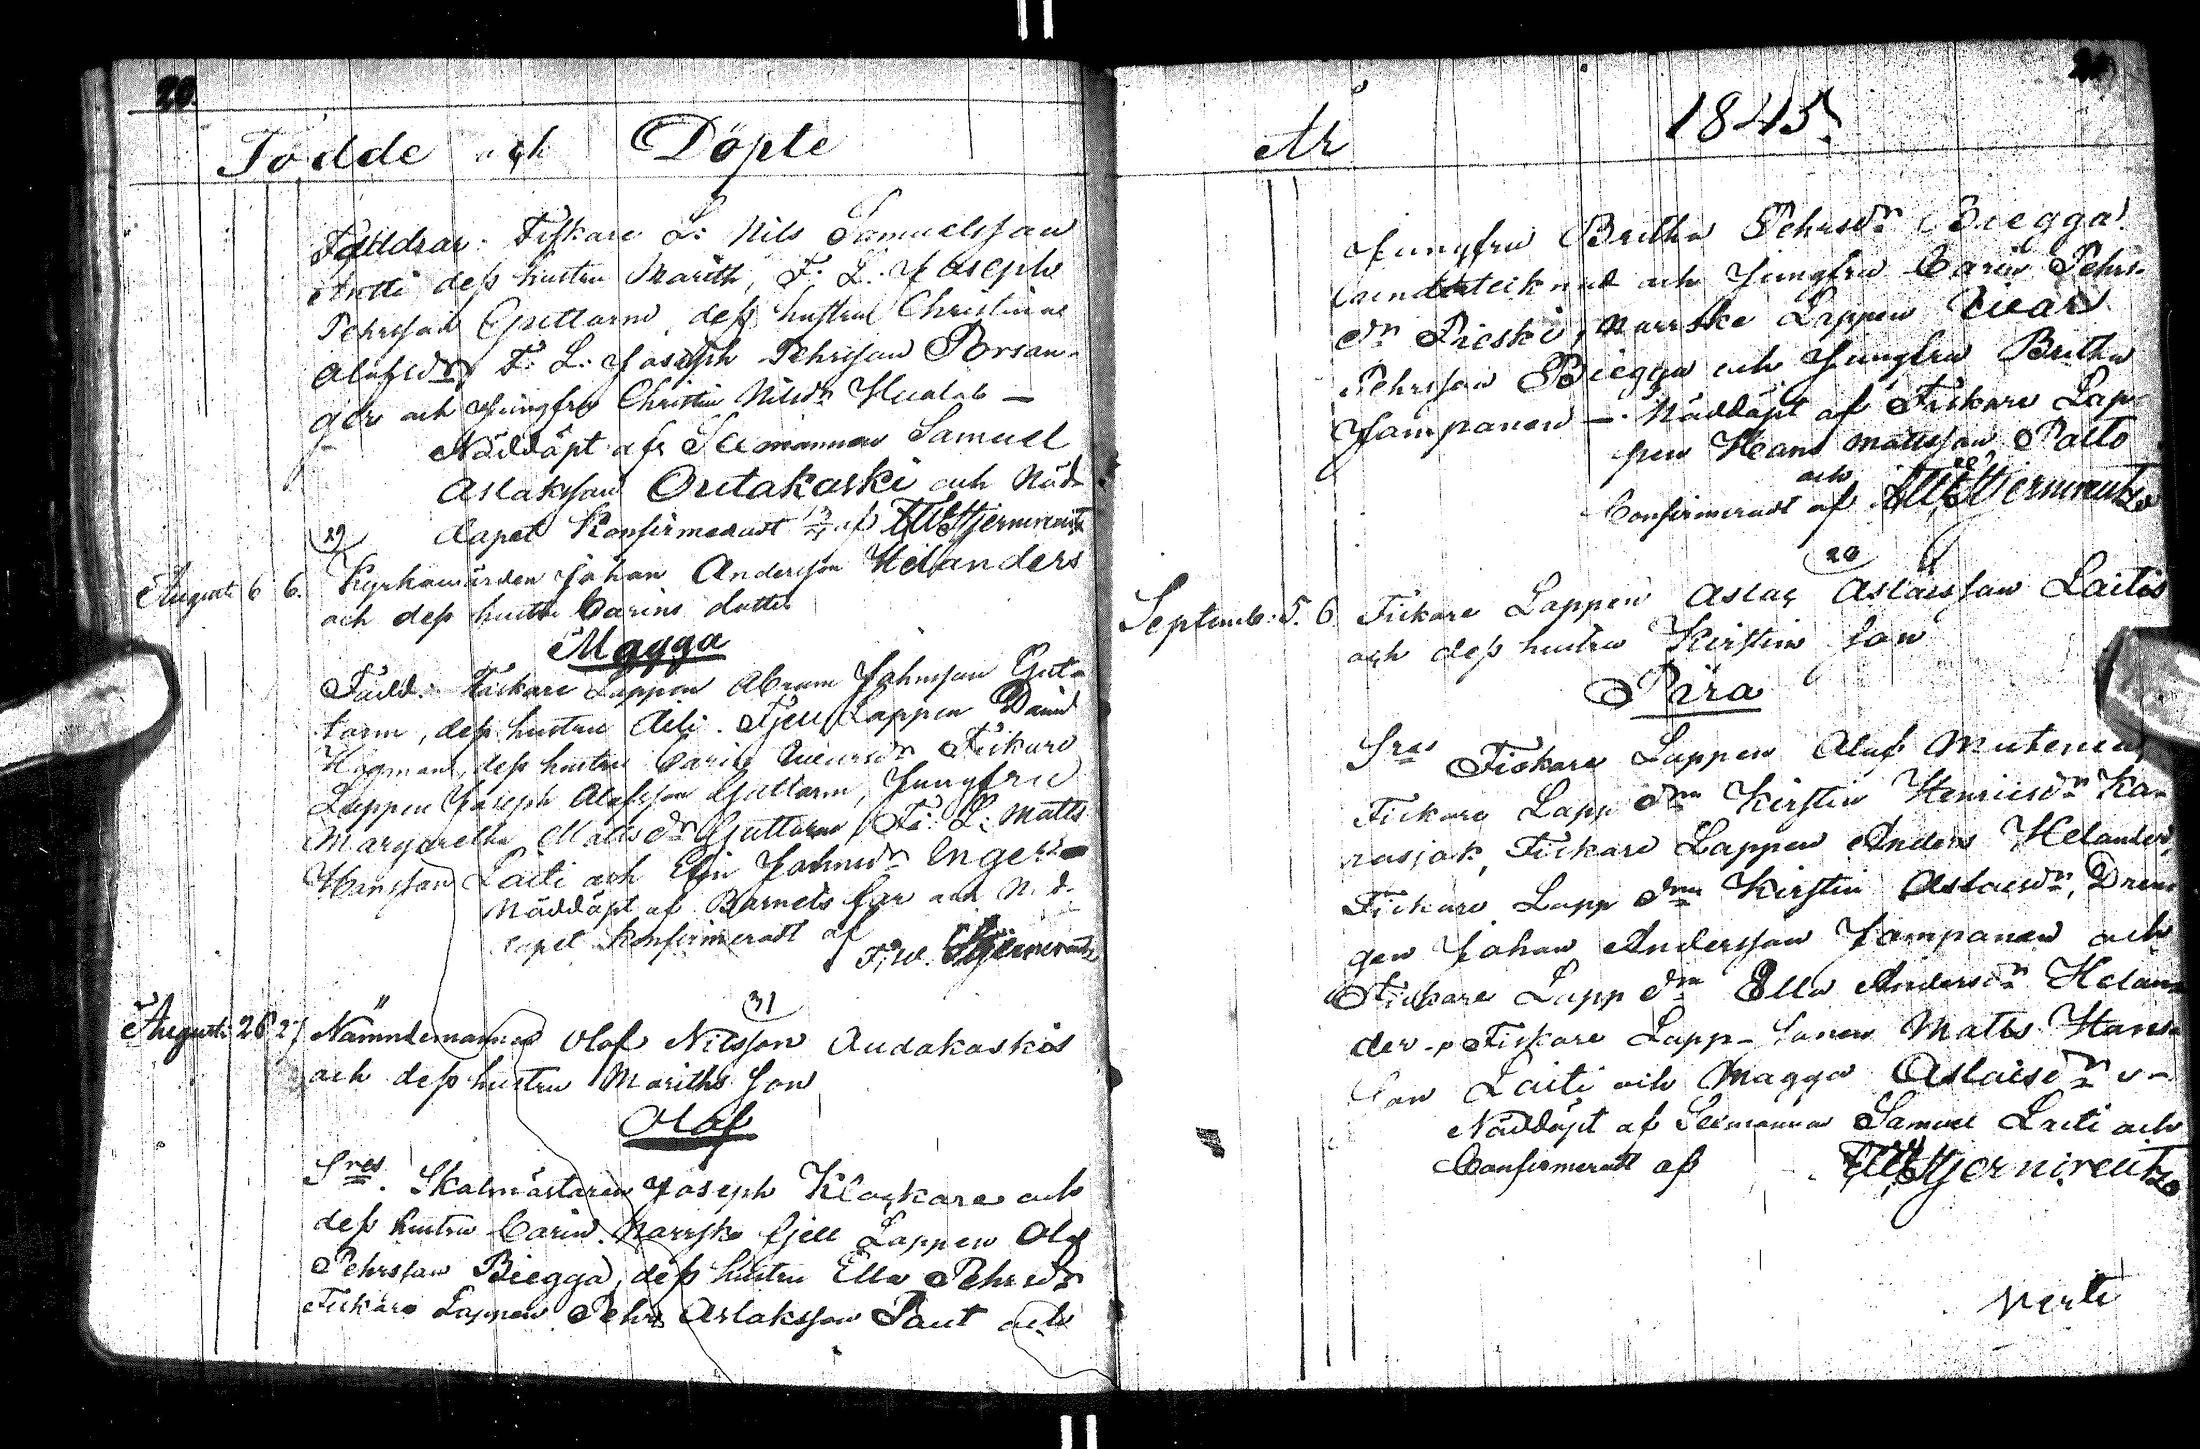 20.
Födde och Döpte
Fäddrar: Fiskare L: Nils Samuelsson
Antti dess hustru Marith, F. L. Joseph
Pehrsson Guttarm, dess hustru Christina
Olofsdr, F. L: Joseph Pehrsson Porsan-
ger och Jungfru Christin Nilsdr Hualab —
Näddöpt af Sexmannen Samuel
Aslaksson Outakoski och Näd-
dopet Konfirmeradt af FW Stjerncreutz
29
Augusti 6 6. Kyrkowärden Johan Andersson Helanders
och dess hustru Carins dotter
Magga
Fadd: Fiskare Lappen Abram Johnsson Gut-
tarm, dess hustru Aili. Fjell Lappen David
Högman, dess hustru Carin Fiskare
Lappen Joseph Olofsson Guttorm, Jungfru
Margaretha Mattsdr Guttarm, Fi: L: Matts
Hansson Laiti och Elin Johnsdr Inger
Näddöpt af Barnets far och N. d.
dopet Konfirmeradt af
F. W. Stjerncreutz
31
Augusti 26 27 Nämndemannen Olof Nilsson Audakoskis
och dess hustru Mariths Son
Olof
Sres. Skolmästaren Joseph Klockare och
dess hustru Carin. Norrska fjell Lappen Olof
Pehrsson Biegga, dess hustru Ella Pehrsdr
Fiskare Lappen Pehr Aslaksson Paut och
År 1845.
Jungfru Britha Pehrsdr Biegga
undertecknad och Jungfru Carin Pehrs-
dr Pieski, Norrske Lappen Iwar
Pehrsson Biegga och Jungfru Britha
Jompanen —. Näddöpt af Fiskare Lap-
pen Hans Mattsson Palto
och
Confirmeradt af FW Stjerncreutz
20
Septemb: 5. 6 Fiskare Lappen Aslac Aslacsson Laitis
och dess hustru Kirstin Son
Pira
Sres Fiskare Lappen Olof Mutenia
Fiskare Lapp Kirstin Henricsdr Ka-
rasjok, Fiskare Lappen Anders Helander,
Fiskare Lapp Kirstin Aslacsdr, Dren-
gen Johan Andersson Jompanen och
Fiskare Lapp Ella Andersdr Helan-
der. Fiskare Lapp- Sonen Matts Hans-
Son Laiti och Magga Aslacsdr
Näddöpt af Sexmannen Samuel Laiti och
Confirmeradt af FW Stjerncreutz
Verte